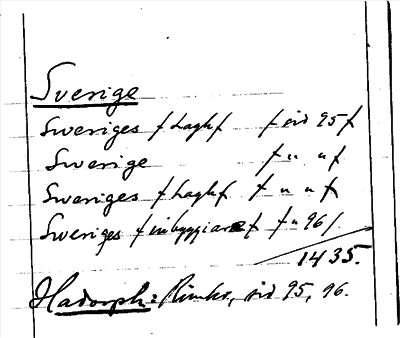 Sverige
Sweriges f Laghf f sid 95 f
Swerige f " " f
Sweriges f Laghf f " " f
Sweriges f inbyggiare f f " 96 f
1435.
Hadorph: Rimkr, sid 95, 96.